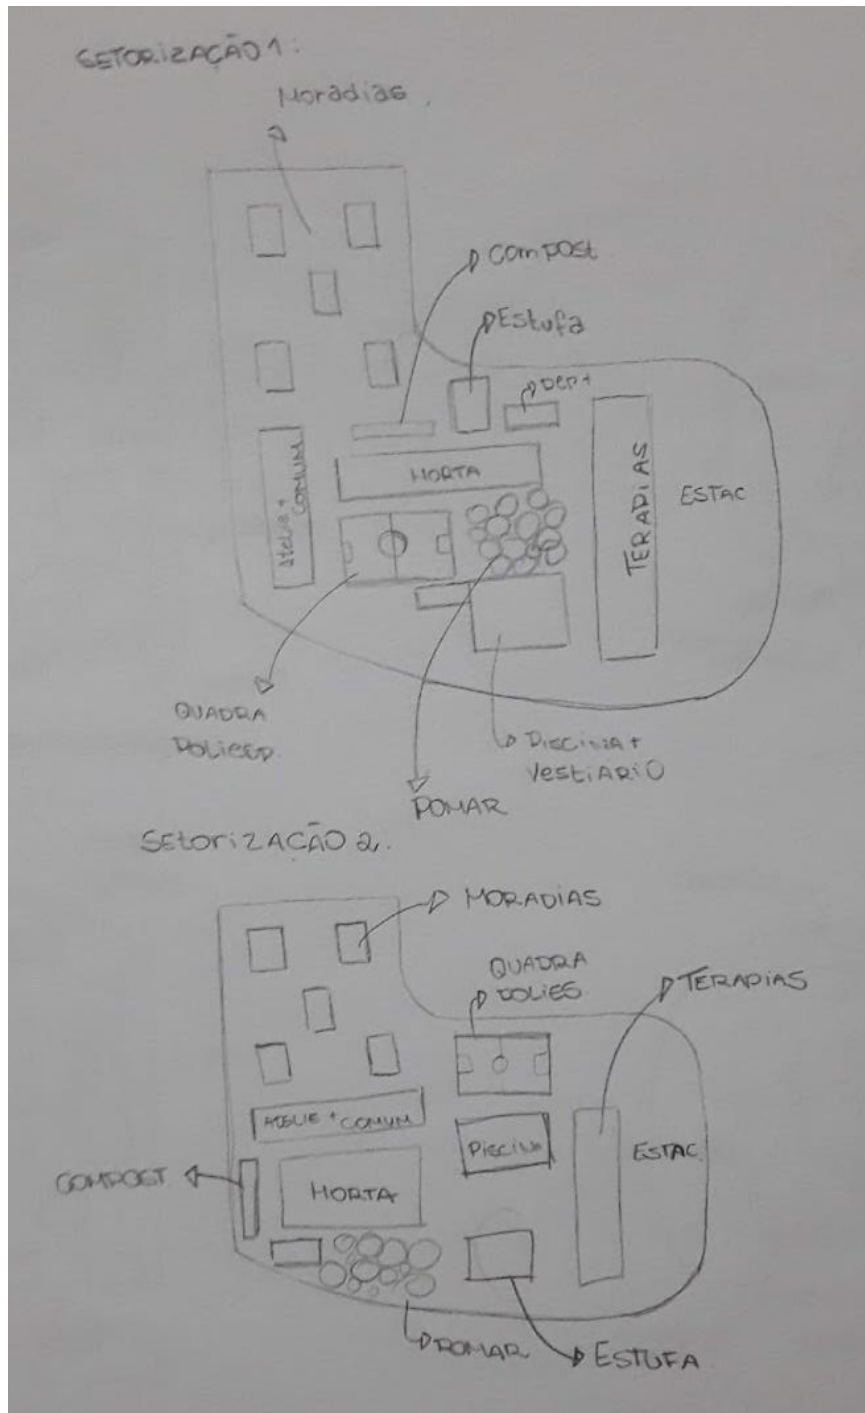 SETORIZAÇÃO 1:
Moradias.
Compost
Estufa
DEP+
HORTA
Atelie +
COMUM
TERAPIAS
ESTAC
QUADRA
POLIESP.
PISCINA +
VESTIÁRIO
POMAR
SETORIZAÇÃO 2.
MORADIAS
QUADRA
POLIES
TERAPIAS
ATELIE + COMUM
PISCINA
ESTAC.
COMPOST
HORTA
POMAR
ESTUFA